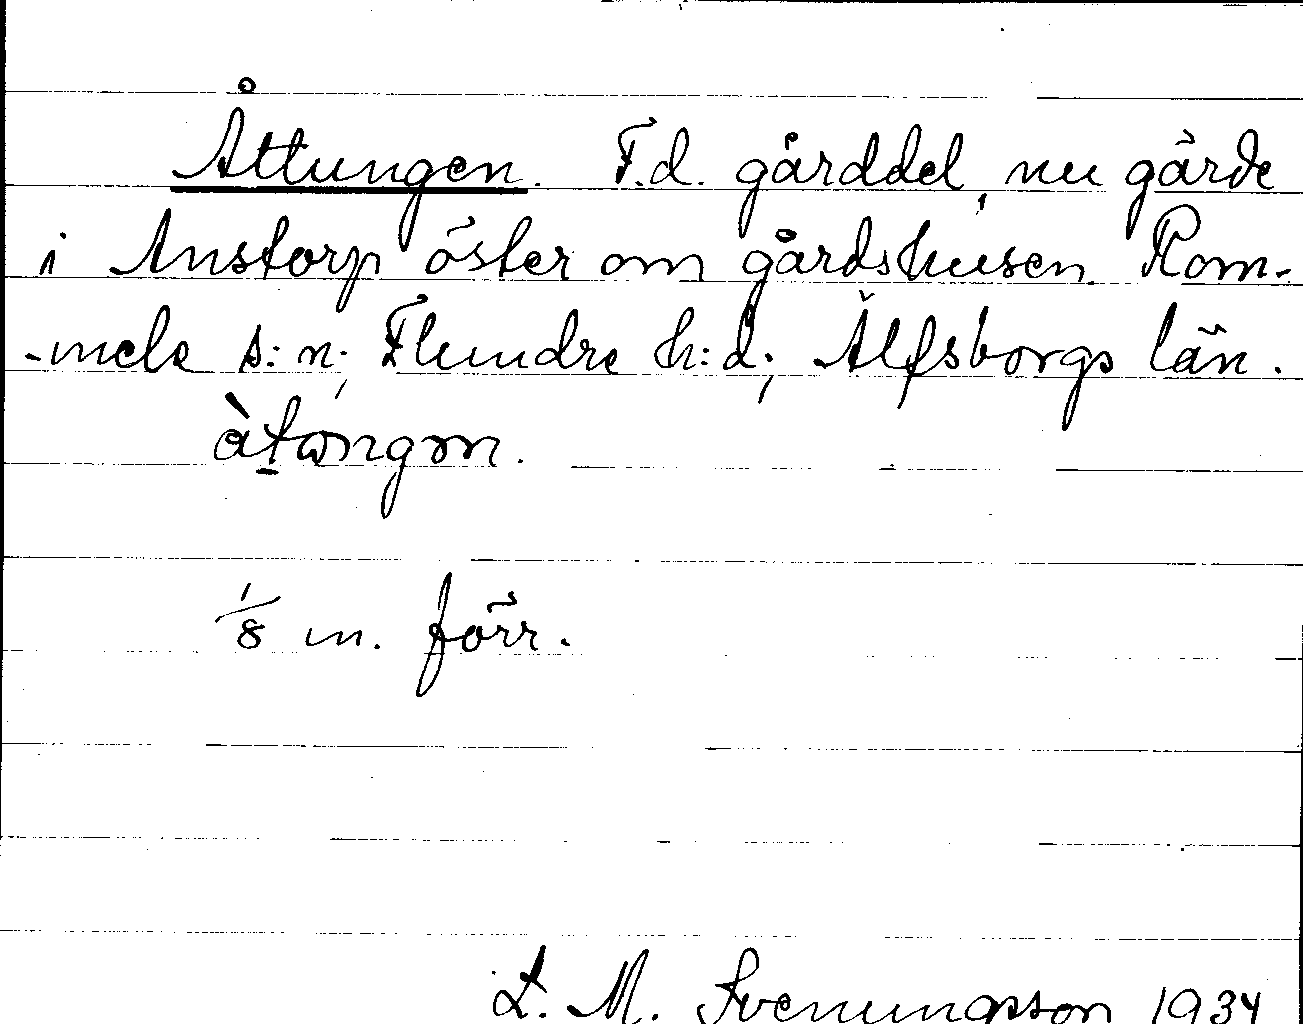 Åttungen. F.d. gårddel, nu gärde
i Anstorp öster om gårdshusen. Rom-
-mele s:n; Flundre h:d; Älfsborgs län.
àtongon.
1/8 m. förr.
L. M. Svenungsson 1934